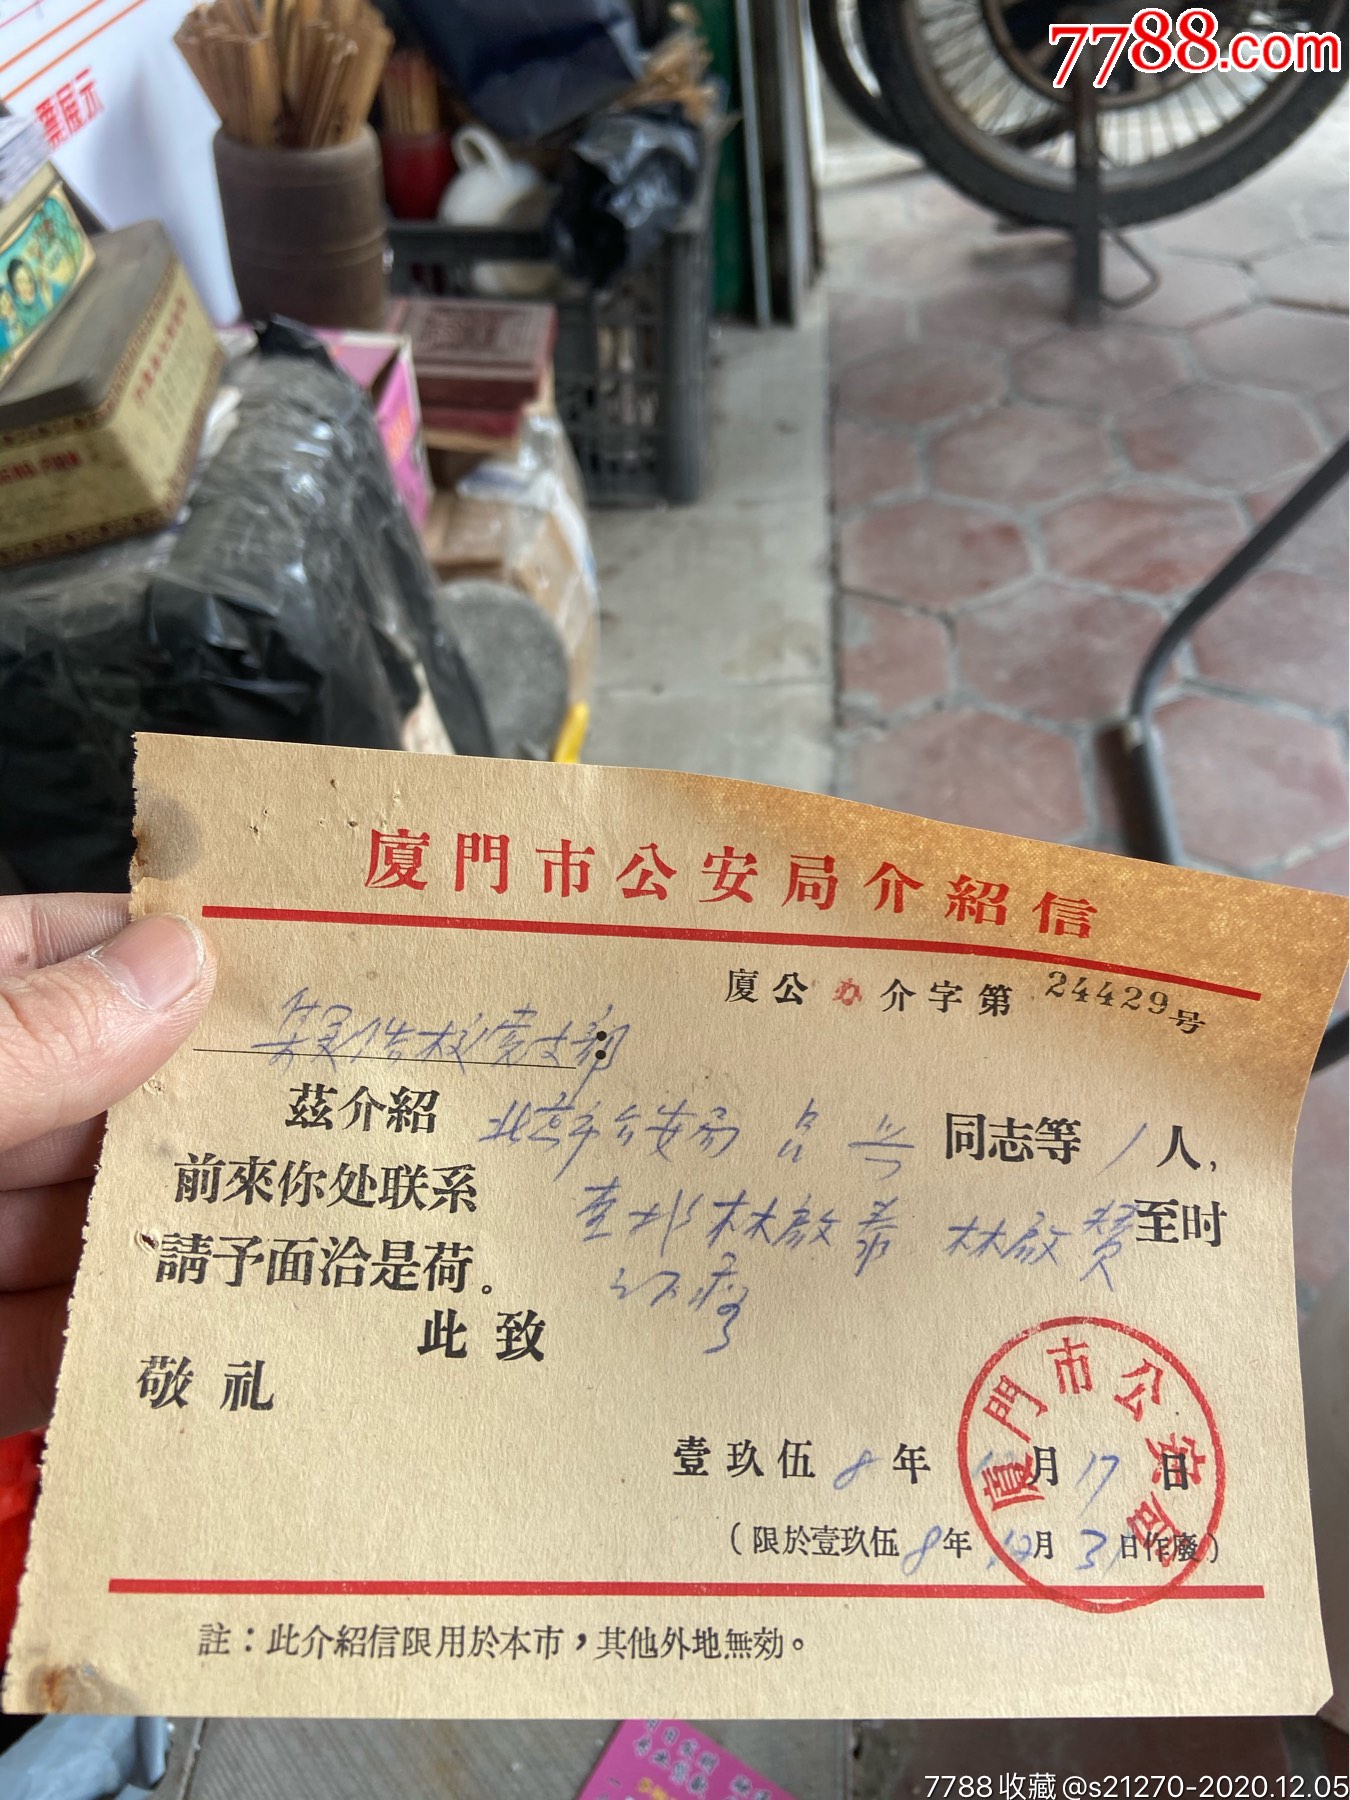 7788.com
票展示
廈門市公安局介紹信
廈公办介字第24429号
集美侨校党支部:
茲介紹 北京市公安局 吕 同志等 1 人,
前來你处联系 查对林啟泰 林啟赞 至时
請予面洽是荷。
此致
敬礼
壹玖伍8年12月17日
(限於壹玖伍8年12月31日作廢)
廈門市公安局
註:此介紹信限用於本市,其他外地無効。
7788收藏@s21270-2020.12.05